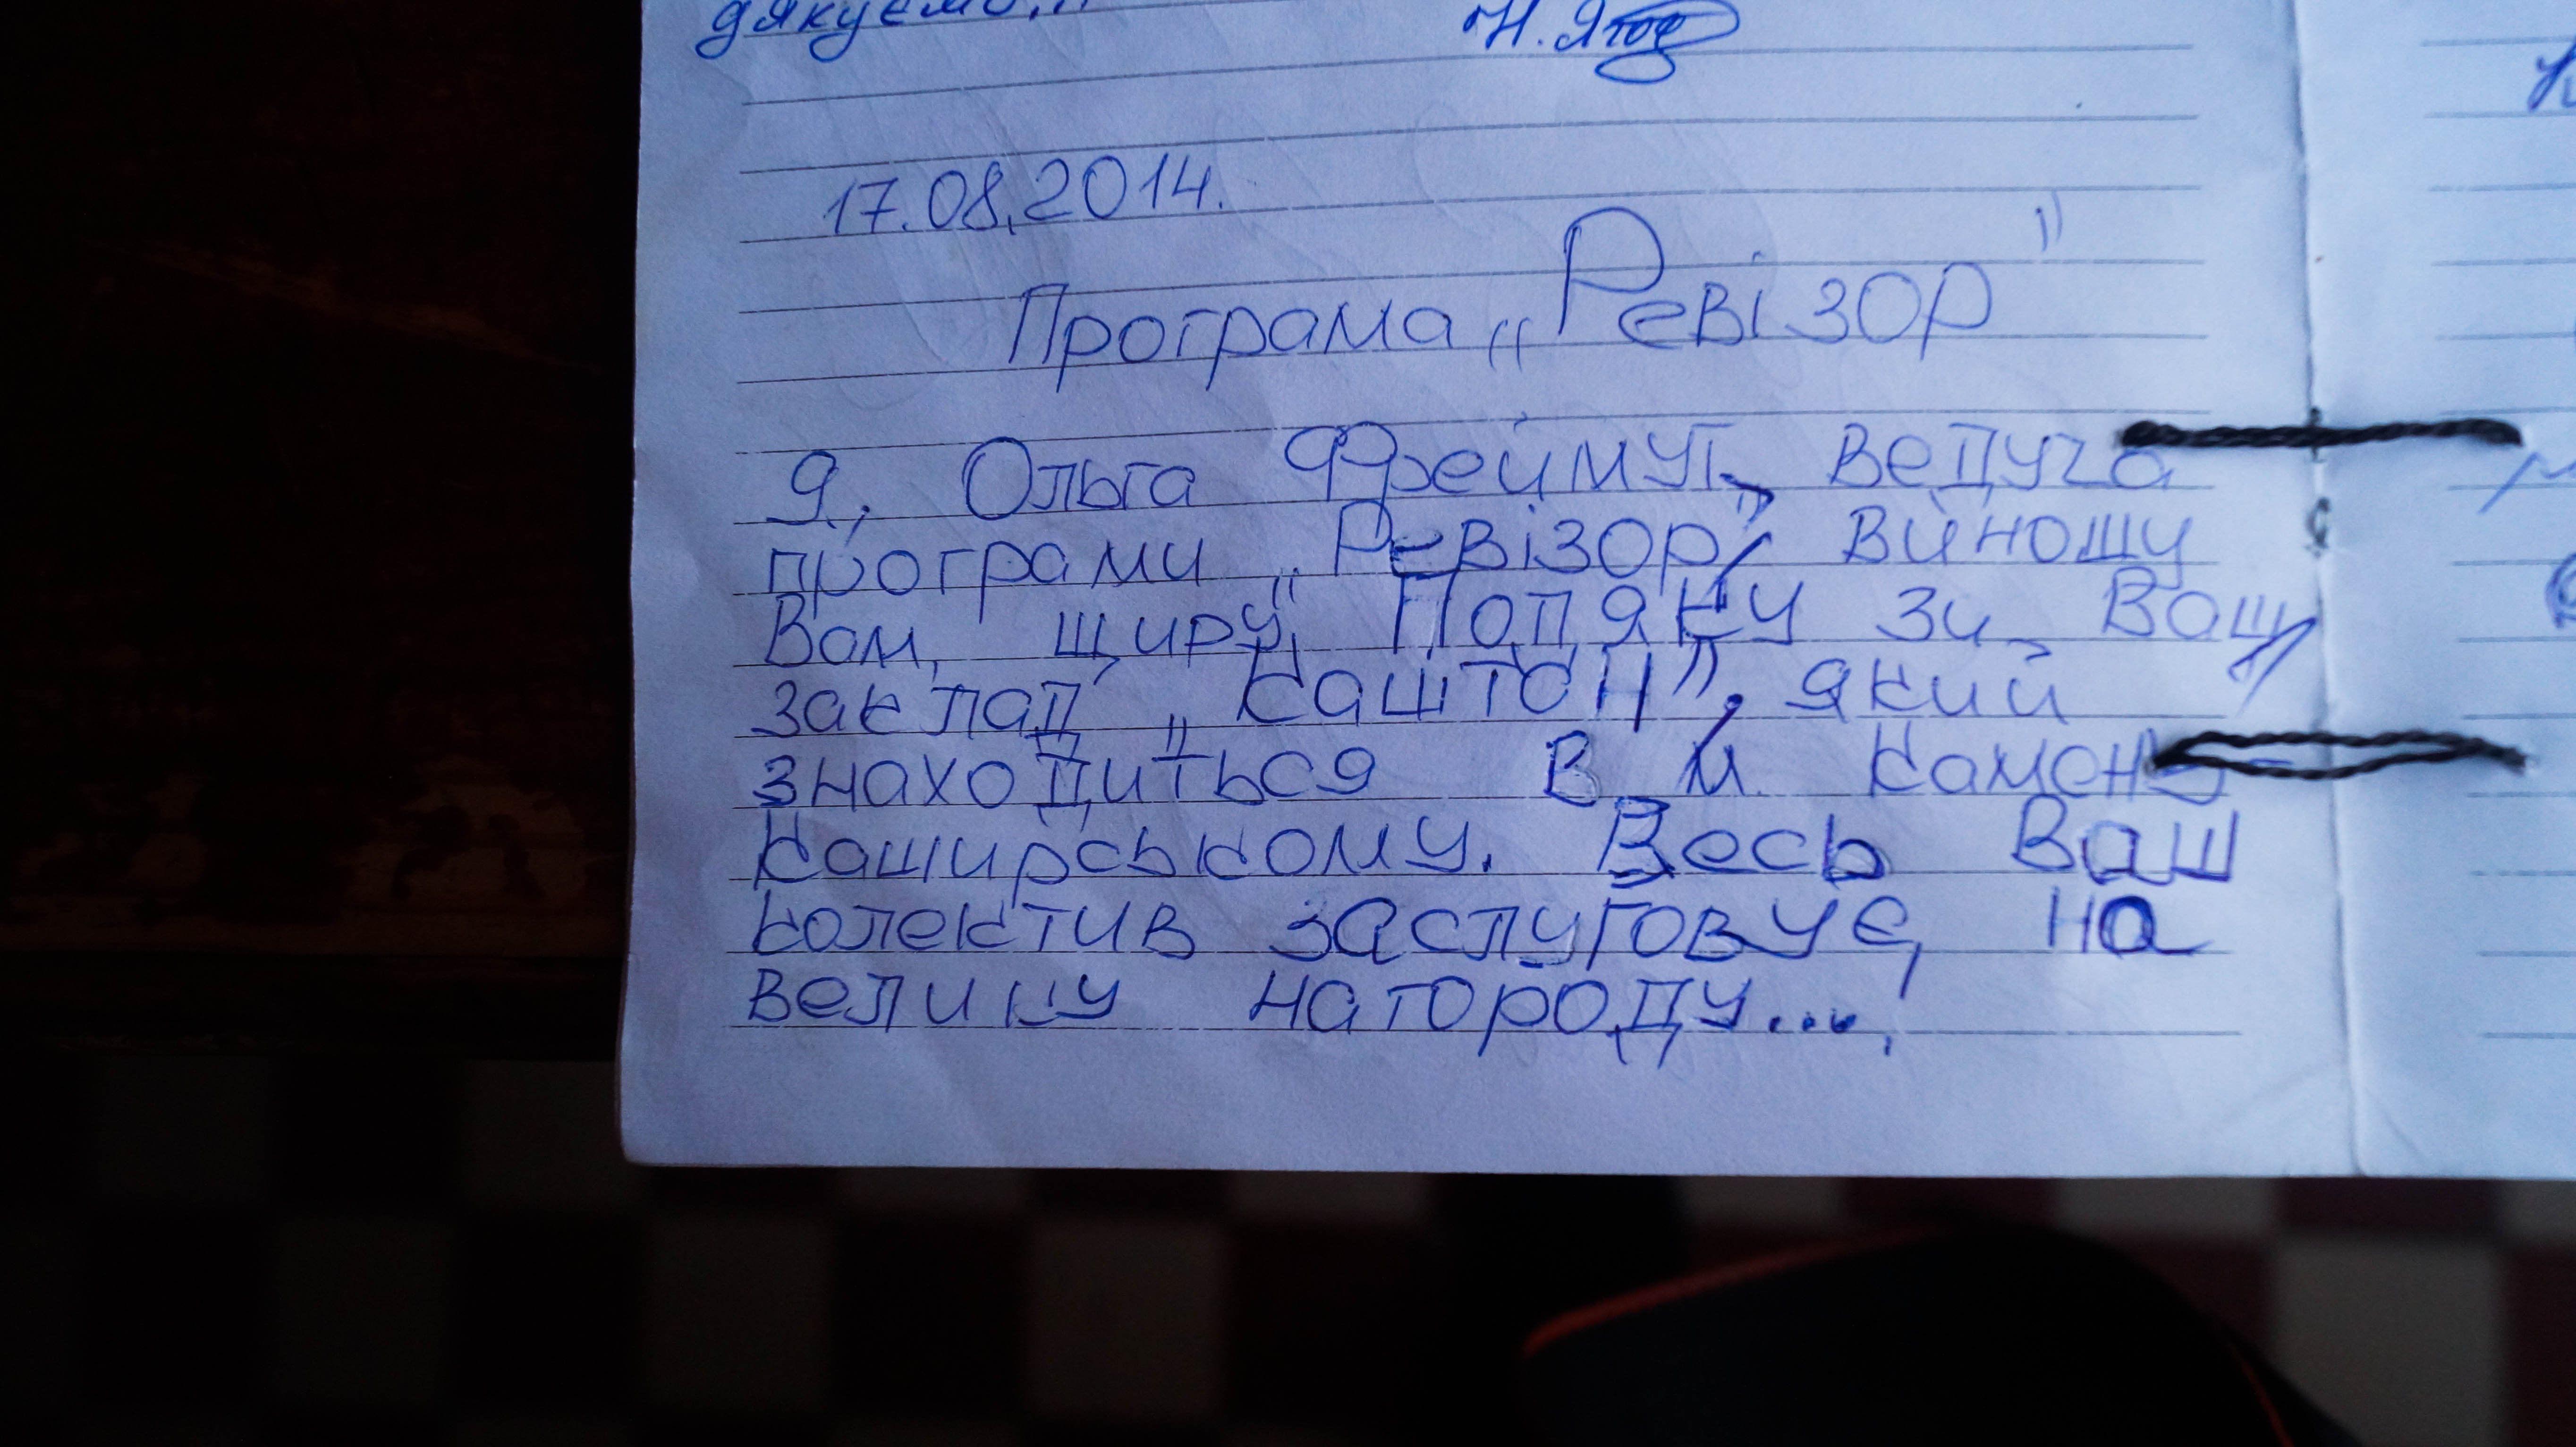 дякуємо!!
17.08.2014.
Програма „Ревізор"
Я, Ольга Фреймут, ведуча
програми „Ревізор", виношу
Вам, щиру Подяку за Ваш
заклад „Каштан", який
знаходиться в м Камєнь-
Каширському. Весь Ваш
колектив заслуговує, на
велику нагороду...,